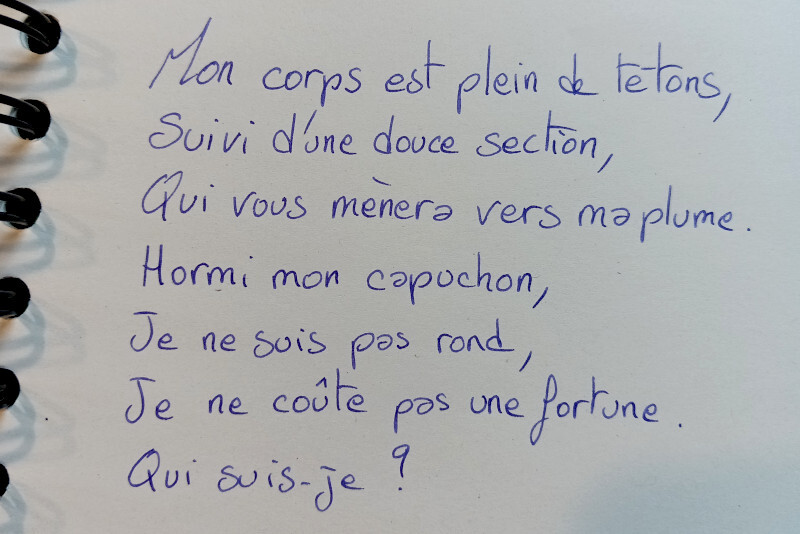 Mon corps est plein de tetons,
Suivi d'une douce section,
Qui vous mènera vers ma plume.
Hormi mon capuchon,
Je ne suis pas rond,
Je ne coûte pas une fortune.
Qui suis-je ?